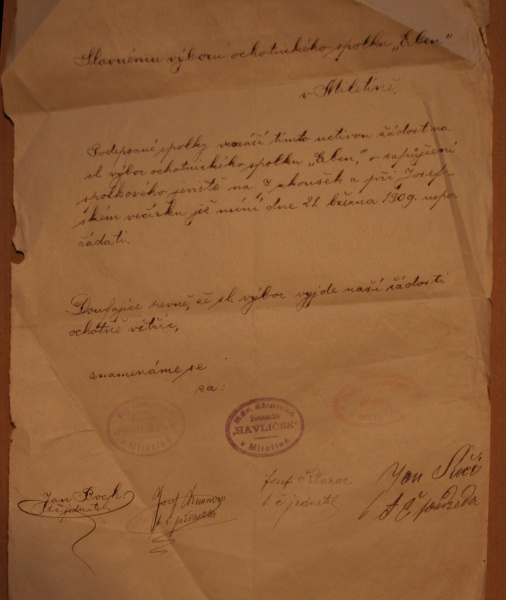 Slavnému výboru ochotnického spolku „Erben"
v Miletíně.
Podepsané spolky vznáší tímto uctivou žádost na
sl. výbor ochotnického spolku „Erben," o zapůjčení
spolkového jeviště na zkoušek a při Josef-
ském večírku jež míní dne 21. března 1909. uspo-
řádati.
Doufajíce pevně, že sl. výbor vyjde naší žádosti
ochotně vstříc,
znamenáme se
za:
Beseda
„HAVLÍČEK"
v Miletíně
v Miletíně
Jan Pock
t. č. jednatel
Josef
t. č. předseda
Josef
t. č. jednatel
Jan
t. č. předseda